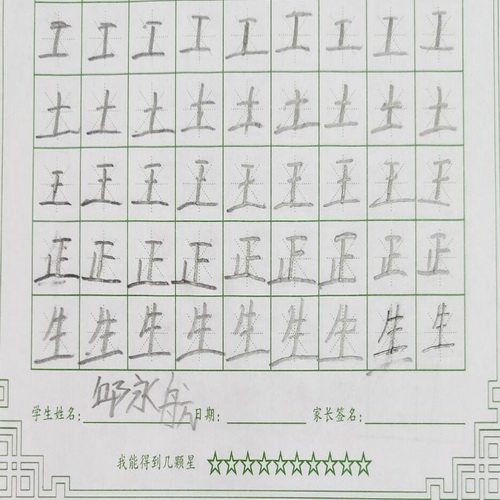 工 工 工 工 工 工 工 工 工
土 土 土 土 土 土 土 土 土
王 王 王 王 王 王 王 王 王
正 正 正 正 正 正 正 正 正
生 生 生 生 生 生 生 生 生
学生姓名: 邱永航 日期: 家长签名:
我能得到几颗星 ☆☆☆☆☆☆☆☆☆☆